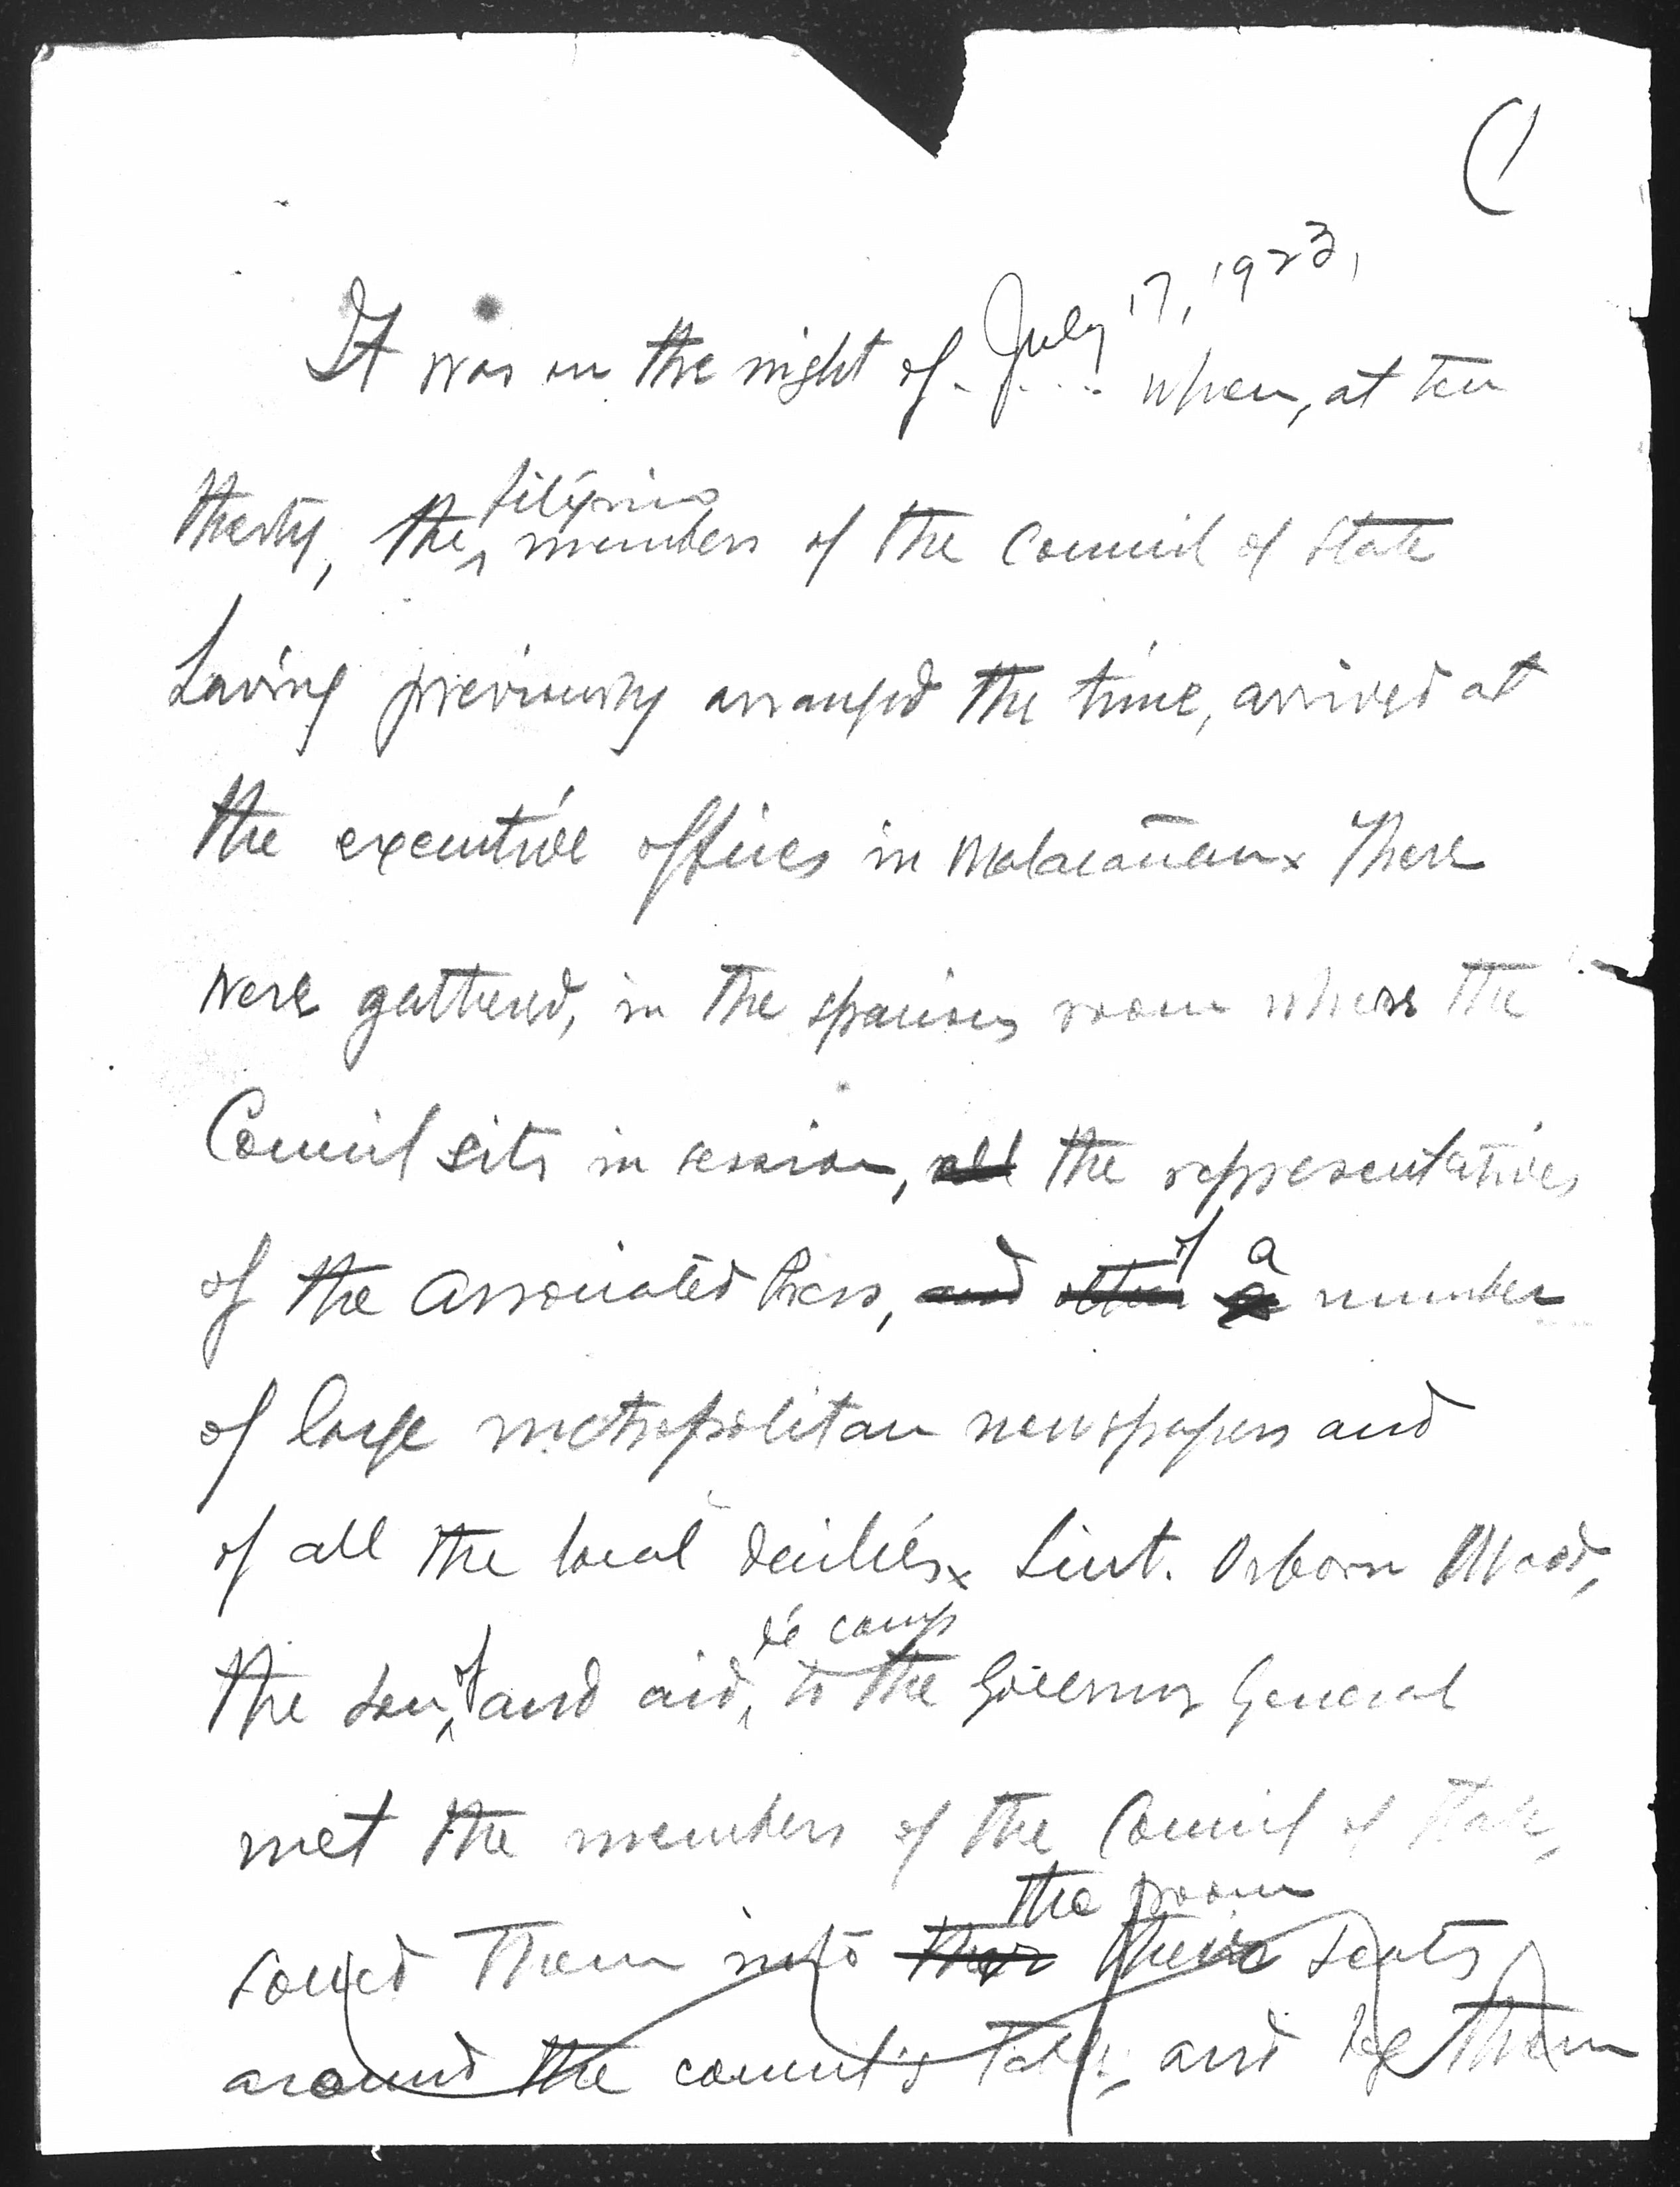 July 17, 1923,
It was on the night of .... when, at ten
filipino
thirty, the members of the Council of State
having previously arranged the time, arrived at
the executive offices in Malacañan x There
were gathered, in the spacious room where the
Council sits in session, all the representatives
of a
of the Associated Press, and other a number
of large metropolitan newspapers and
of all the local dailies x Lieut. Osborn Wood,
of de camp
the son, and aid, to the Governor General
met the members of the Council of State,
the room
them into their their seats
around the council's table, and them